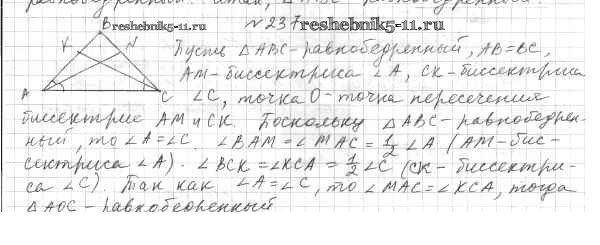 B reshebnik5-11.ru
№ 237 reshebnik5-11.ru
K N
Пусть △ABC - равнобедренный, AB=BC,
AM - биссектриса ∠A, CK - биссектриса
A C ∠C, точка O - точка пересечения
биссектрис AM и CK. Поскольку △ABC - равнобедрен-
ный, то ∠A=∠C. ∠BAM=∠MAC=1/2 ∠A (AM - бис-
сектриса ∠A). ∠BCK=∠KCA=1/2 ∠C (CK - биссектри-
са ∠C). Так как ∠A=∠C, то ∠MAC=∠KCA, тогда
△AOC - равнобедренный